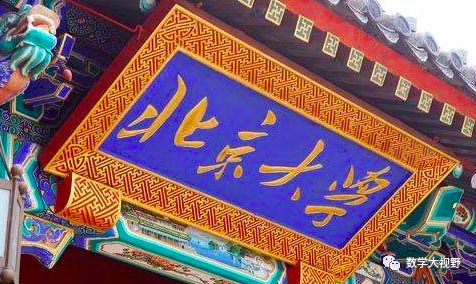 北京大学
数学大视野